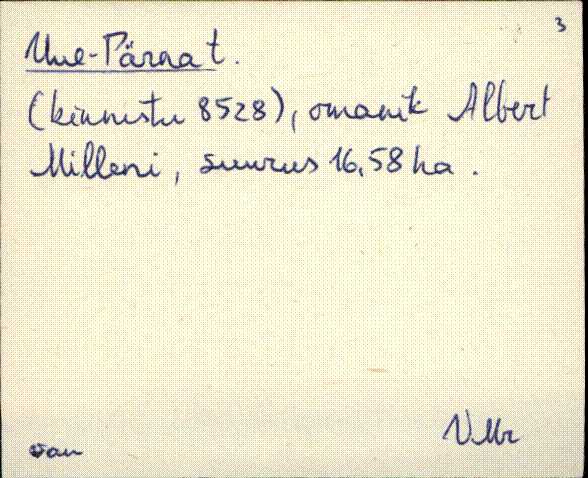 3
Uue-Pärna t.
(kinnistu 8528), omanik Albert
Milleni, suurus 16,58 ha.
VMr